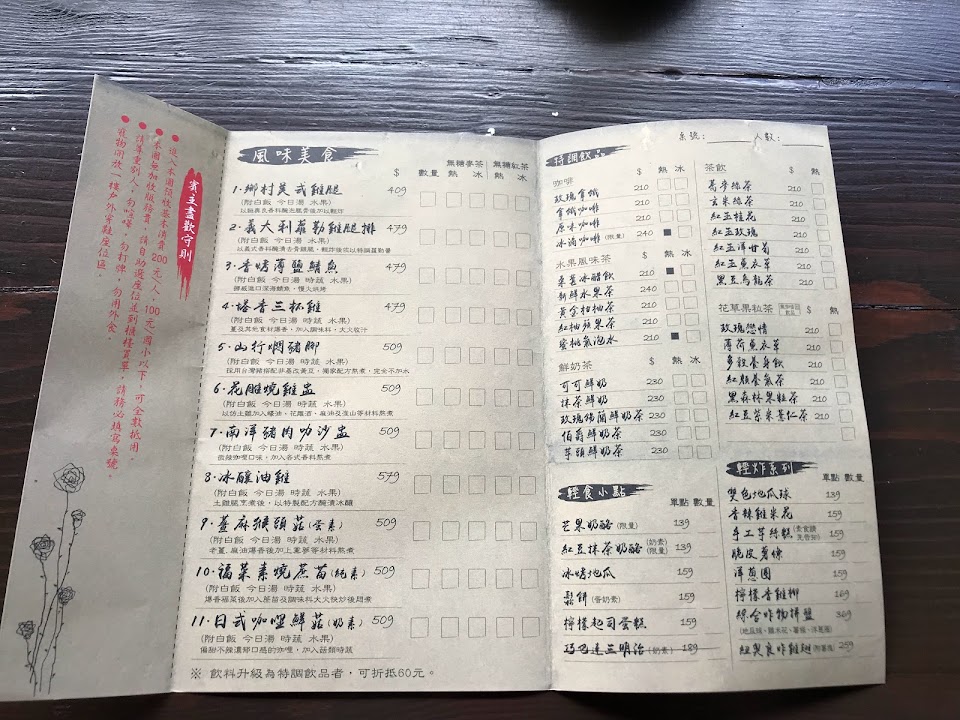 賓主盡歡守則
風味美食
無糖麥茶 無糖紅茶
$ 數量 熱 冰 熱 冰
1·鄉村美式雞腿 409
(附白飯 今日湯 水果)
2·義大利蘿勒雞腿排 479
(附白飯 今日湯 水果)
3·香烤薄鹽鯖魚 479
(附白飯 今日湯 時蔬 水果)
挪威進口深海鯖魚，慢火烘烤
4·塔香三杯雞 479
(附白飯 今日湯 時蔬 水果)
5·山行燜豬腳 509
(附白飯 今日湯 時蔬 水果)
6·花雕燒雞盅 509
(附白飯 今日湯 時蔬 水果)
7·南洋豬肉咖沙盅 509
(附白飯 今日湯 時蔬 水果)
8·冰釀油雞 579
(附白飯 今日湯 時蔬 水果)
9·薑麻猴頭菇(蛋素) 509
(附白飯 今日湯 時蔬 水果)
10·福菜素燒蔗苗(純素) 509
(附白飯 今日湯 時蔬 水果)
11·日式咖哩鮮菇(奶素) 509
(附白飯 今日湯 時蔬 水果)
偏甜不辣濃郁口感的咖哩，加入菇類時蔬
※ 飲料升級為特調飲品者，可折抵60元。
桌號： 人數：
特調飲品
咖啡 $ 熱 冰
玫瑰拿鐵 210
拿鐵咖啡 210
原味咖啡 210
冰滴咖啡(限量) 240
水果風味茶 $ 熱 冰
桑葚冰醋飲 210
新鮮水果茶 240
黃金桔柚茶 210
紅柚蘋果茶 210
蜜桃氣泡水 210
鮮奶茶 $ 熱 冰
可可鮮奶 230
抹茶鮮奶 230
玫瑰鍋蘭鮮奶茶 230
伯爵鮮奶茶 230
芋頭鮮奶茶 230
茶飲 $ 熱
蕎麥綠茶 210
玄米綠茶 210
紅豆桂花 210
紅豆玫瑰 210
紅豆洋甘菊 210
紅豆薰衣草 210
黑豆烏龍茶 210
花草果粒茶
玫瑰戀情 210
薄荷薰衣草 210
多穀養身飲 210
紅顏養氣茶 210
黑森林果粒茶 210
紅豆紫米薏仁茶 210
輕食小點 單點 數量
芒果奶酪(限量) 139
紅豆抹茶奶酪(奶素)(限量) 139
冰烤地瓜 159
鬆餅(蛋奶素) 159
檸檬起司蛋糕 159
巧巴達三明治(奶素) 189
輕炸系列 單點 數量
雙色地瓜球 139
香辣雞米花 159
手工芋絲糕(素食請先告知) 159
脆皮薯條 159
洋蔥圈 159
檸檬香雞柳 169
綜合炸物拼盤 369
(地瓜球、雞米花、薯條、洋蔥圈)
紐奧良炸雞翅(附薯條) 259